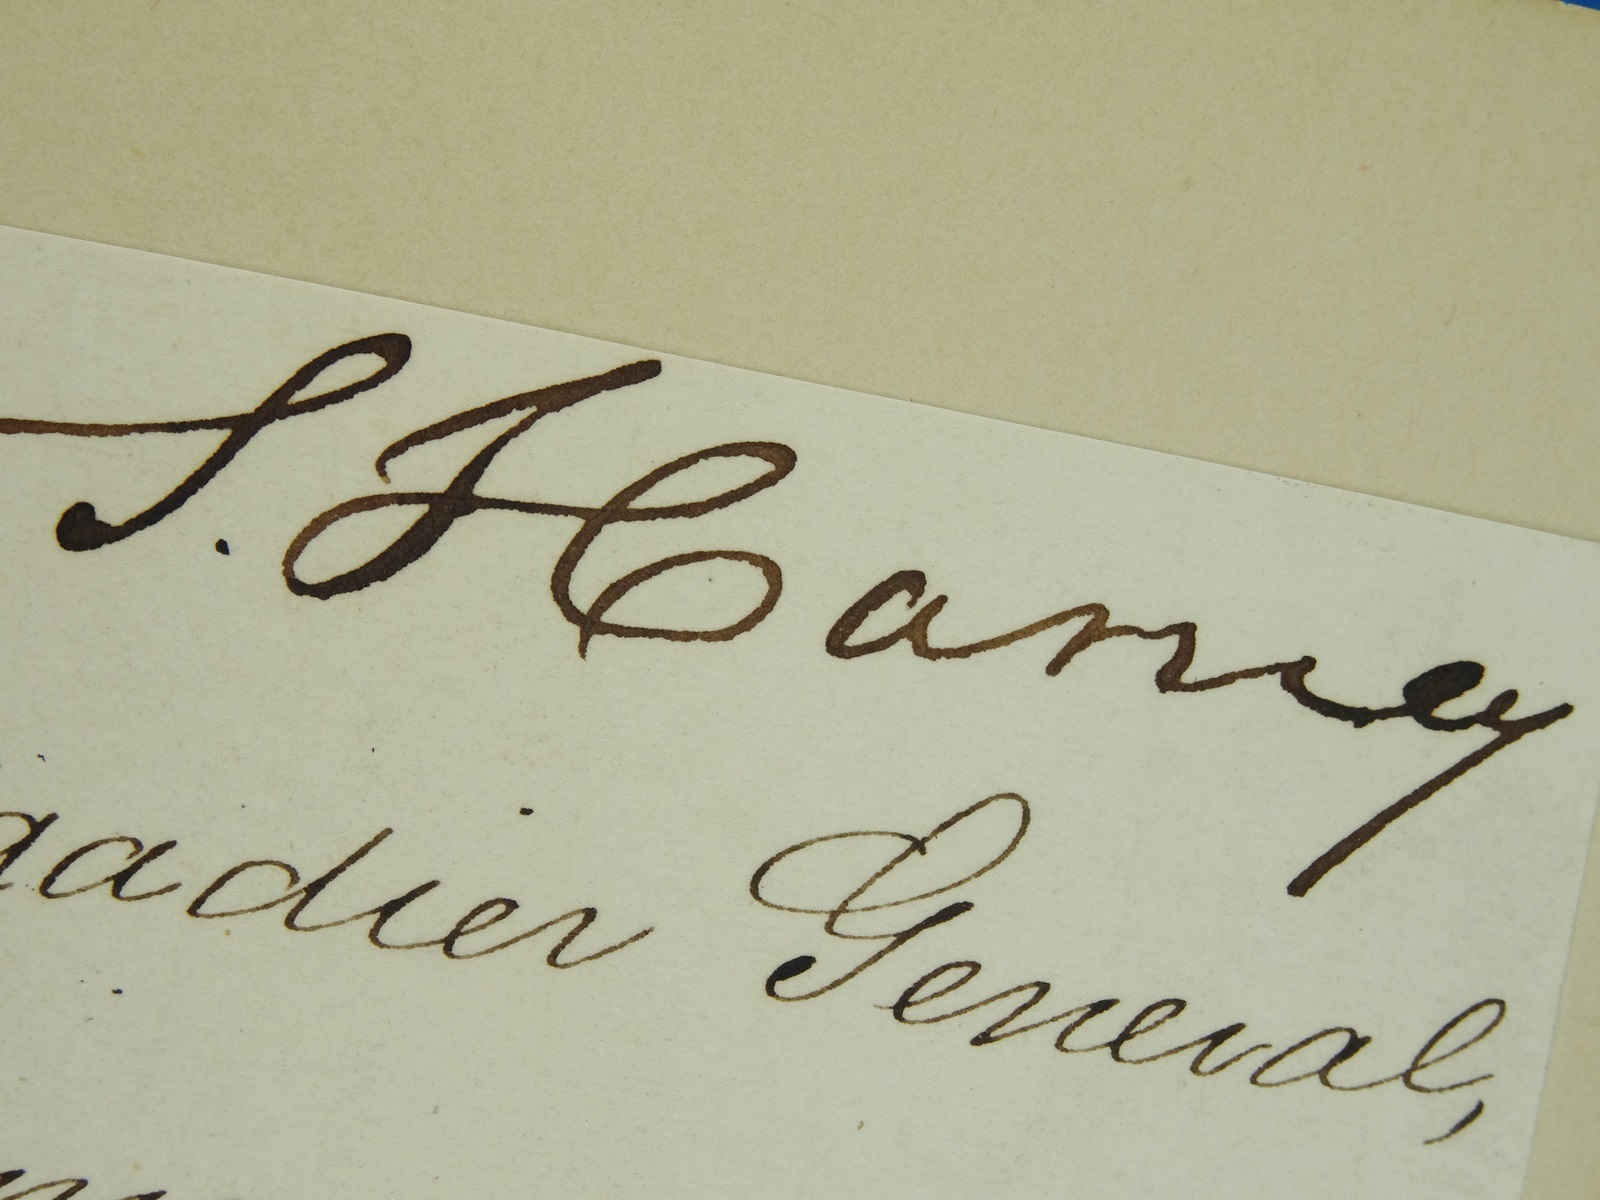 S. Harney
gadier General,